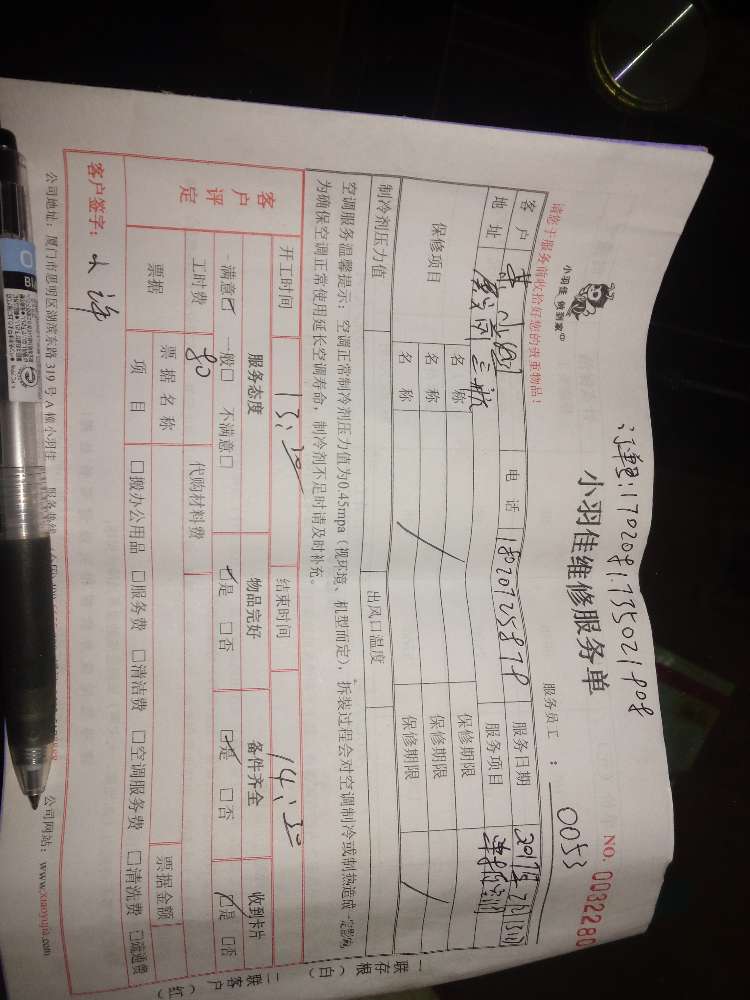 订单号:1702081735021808
小羽佳 做到家中
小羽佳维修服务单
NO. 0032280
请您于服务前收拾好您的贵重物品！
服务员工： 0053
客户 黄小姐 电话 18020725878 服务日期
地址 服务项目
保修项目 名称 保修期限
名称 保修期限
名称 保修期限
制冷剂压力值 出风口温度
空调服务温馨提示：空调正常制冷剂压力值为0.45mpa（视环境、机型而定），拆装过程会对空调制冷或制热造成一定影响，
为确保空调正常使用延长空调寿命，制冷剂不足时请及时补充。
开工时间 13:30 结束时间 14:30
客户评定 服务态度 物品完好 备件齐全 收到卡片
满意☑ 一般□ 不满意□ ☑是 □否 ☑是 □否 ☑是 □否
工时费 80 代购材料费
票据 票据名称 票据金额
项目 □搬办公用品 □服务费 □清洁费 □空调服务费 □清洗费 □疏通费
客户签字：
公司地址：厦门市思明区湖滨东路319号A幢小羽佳 公司网站：www.xiaoyujia.com
一联存根（白）
二联客户（红）